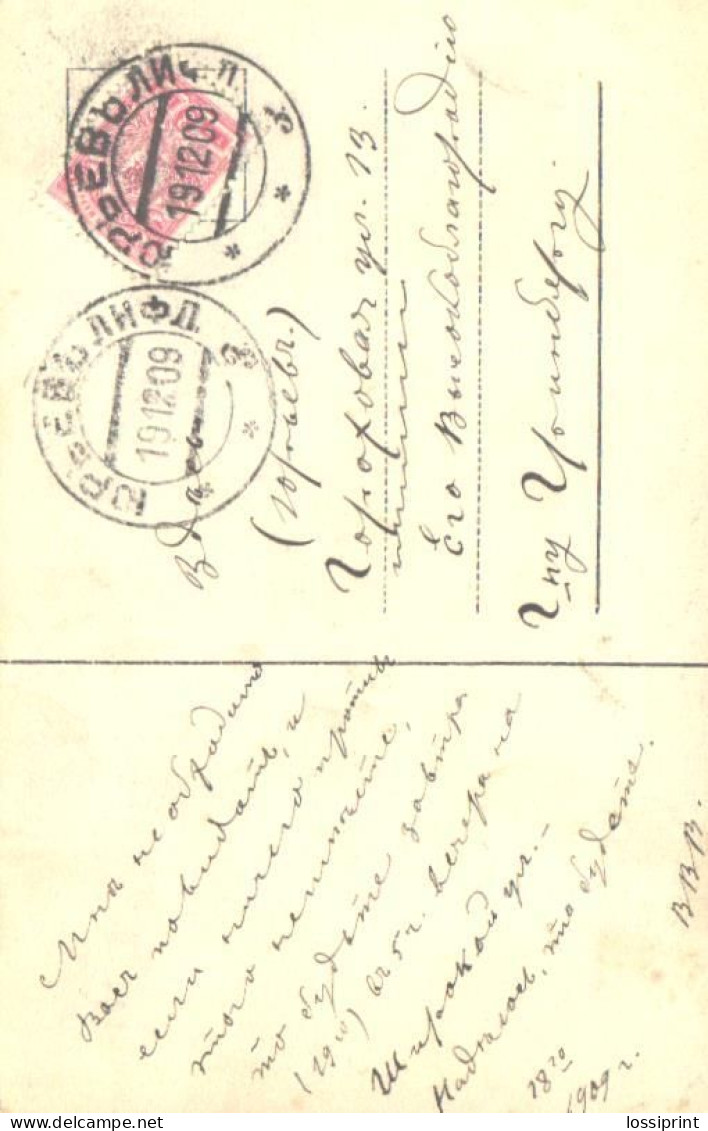 ЮРЬЕВЪ ЛИФЛ.
19 12 09
ЮРЬЕВЪ ЛИФЛ.
19 12 09
Здѣсь
(Юрьевъ.)
Гороховая ул. 13.
Его Высокоблагородію
Г-ну
Мнѣ необходимо
Васъ повидать, и
если ничего противъ
этого не имѣете,
то будьте завтра
(19го) въ 5 ч. вечера на
Широкой ул.—
Надѣюсь, что будете.
В В В.
18го
1909 г.
lossiprint